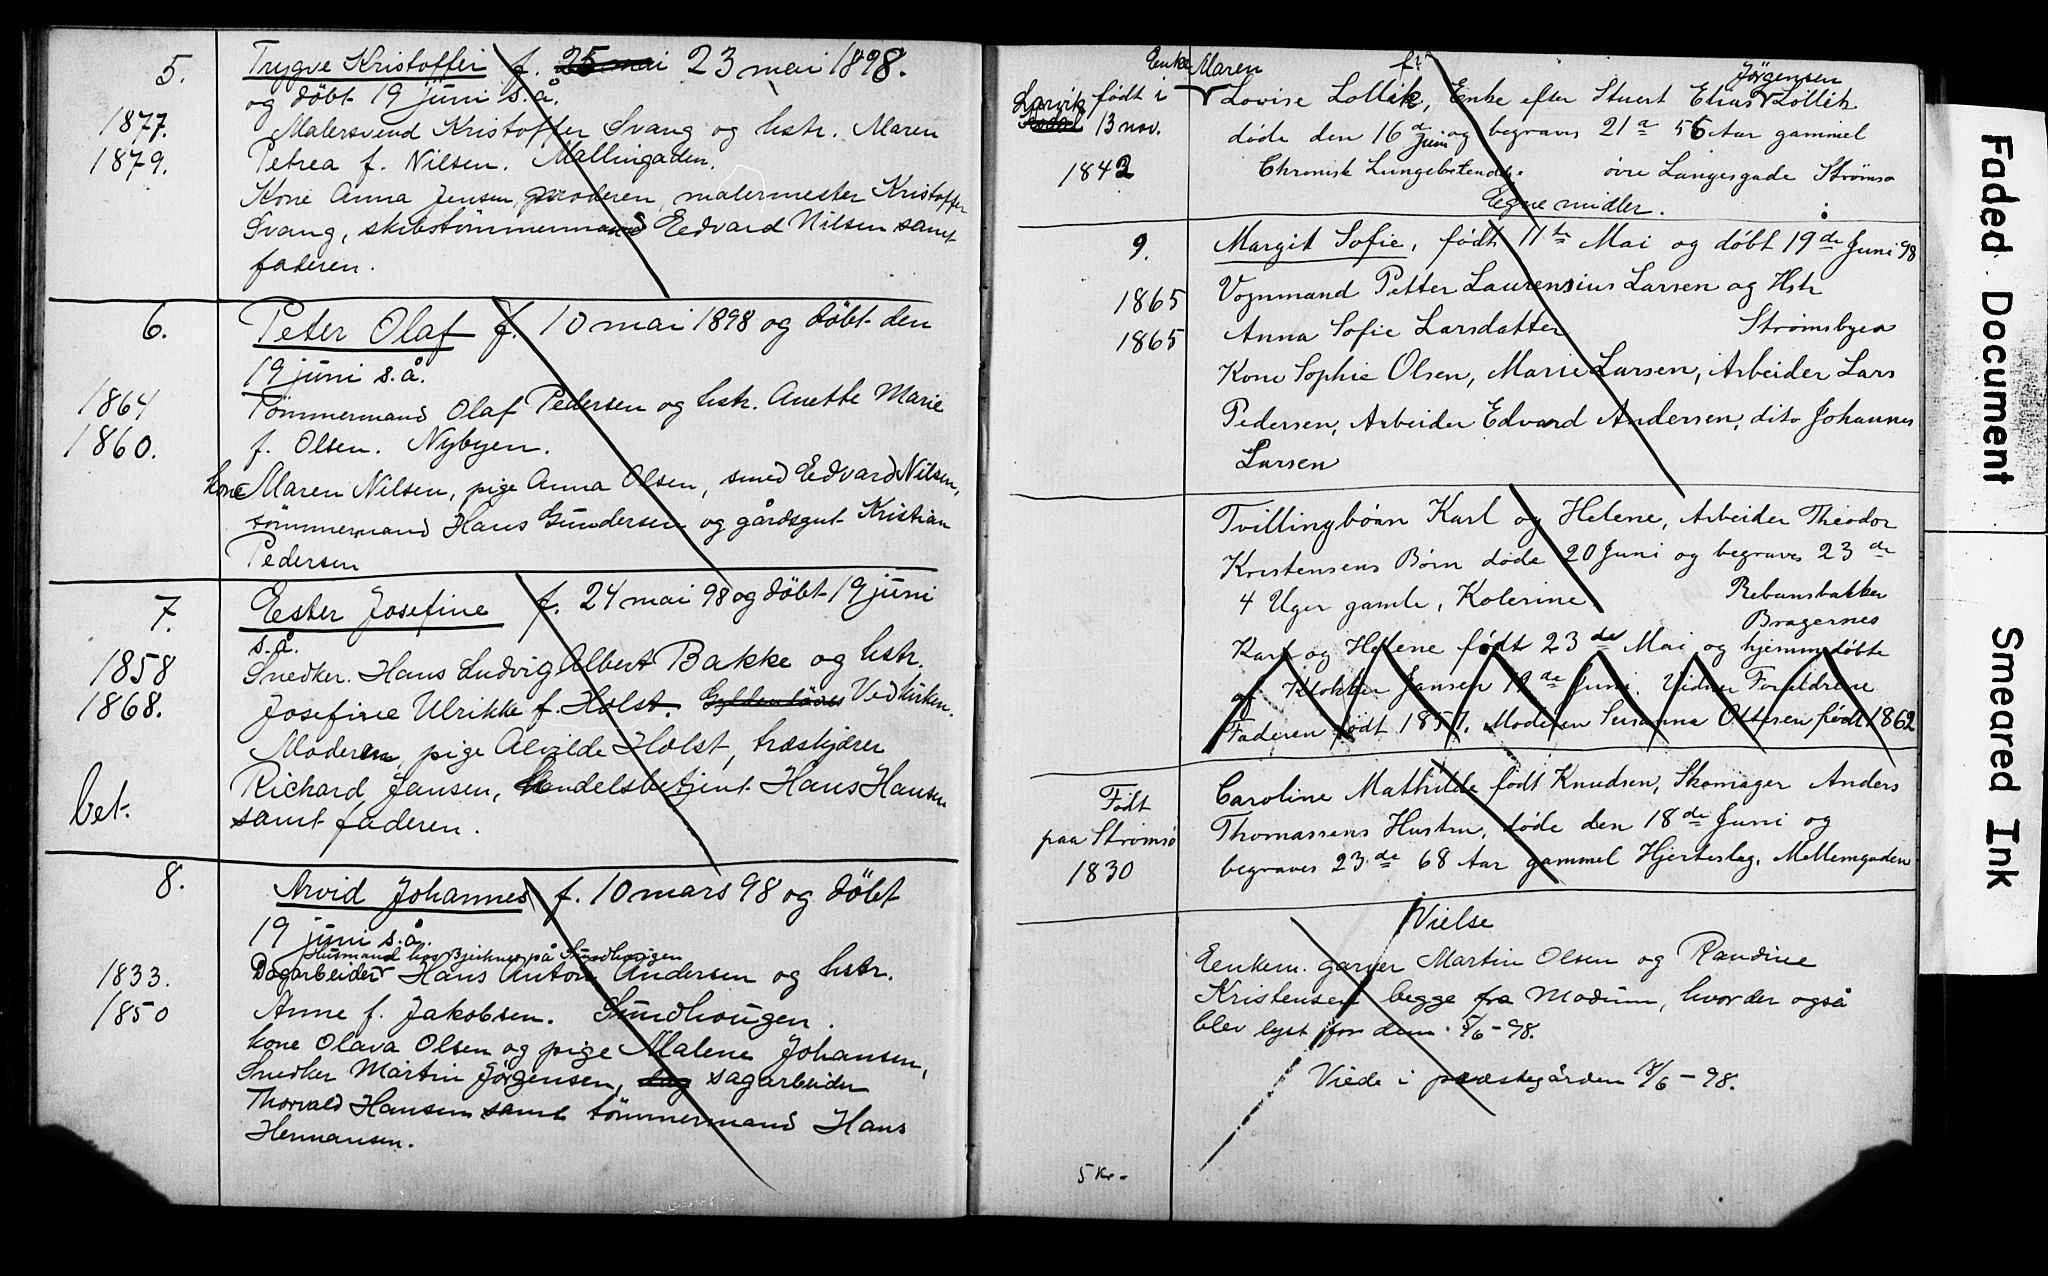 5. Trygve Kristoffer f. 25 mai 23 mai 1898.
og döbt 19 juni s.å.
1877. Malersvend Kristoffer Svang og hstr. Maren
1879. Petrea f. Nilsen. Mallingaden.
Kone Anna Jensen, moderen, malermester Kristoffer
Svang, skibstömmermand Eedvard Nilsen samt
faderen.
6. Peter Olaf f. 10 mai 1898 og döbt den
19 juni s.å.
1864 Tömmermand Olaf Pedersen og hstr. Anette Marie
1860. f. Olsen. Nybyen.
kone Maren Nilsen, pige Anna Olsen, smed Eedvard Nilsen,
tömmermand Hans Gundersen og gårdsgut Kristian
Pedersen
7. Eester Josefine f. 24 mai 98 og döbt 19 juni
s.å.
1858 Snedker. Hans Ludvig Albert Bakke og hstr.
1868. Josefine Ulrikke f. Holst. Gyldenlöves Ved kirken.
Moderen, pige Alvilde Holst, træskjærer
bet. Richard Jansen, Handelsbetjent Hans Hansen
samt faderen.
8. Arvid Johannes f. 10 mars 98 og döbt
19 juni s.å.
Husmand hos Bjerknes på Sundhougen
1833. Dagarbeider Hans Anton Andersen og hstr.
1850 Anne f. Jakobsen. Sundhougen.
kone Olava Olsen og pige Malene Johansen,
Snedker Martin Jörgensen, dag sagarbeider
Thorvald Hansen samt tömmermand Hans
Hermansen.
Enke Maren f. Jörgensen
Larvik født i Lovise Lollik, Enke efter Stuert Elias Lollik
13 nov. døde den 16 de Juni og begraves 21 a 55 Aar gammel
1843 Chronisk Lungebetendse. øvre Langesgade Strømsø
Egne midler.
9. Margit Sofie, født 11te Mai og døbt 19de Juni 98
1865 Vognmand Petter Laurensius Larsen og Hstr
1865 Anna Sofie Larsdatter Strømsbyen
Kone Sophie Olsen, Marie Larsen, Arbeider Lars
Pedersen, Arbeider Edvard Andersen, dito Johannes
Larsen
Tvillingbörn Karl og Helene, Arbeider Theodor
Kristensens Börn døde 20 Juni og begraves 23 de
4 Uger gamle, Kolerine. Rebansbakken
Bragernes
Karl og Helene født 23 de Mai og hjemmedøbte
af Klokker Jansen 19 de Juni. Vidner Forældrene
Faderen født 1857. Moderen Susanna Ottesen født 1862
Født Caroline Mathilde født Knudsen, Skomager Anders
paa Strømsø Thomassens Hustru, døde den 18 de Juni og
1830 begraves 23 de 68 Aar gammel Hjerteslag. Mellemgaden
Vielse
Eenkem. garver Martin Olsen og Randine
Kristensen begge fra Modum, hvor der også
blev lyst for dem. 5/6-98.
Viede i præstegården 18/6-98.
5 Kr.
Faded Document
Smeared Ink